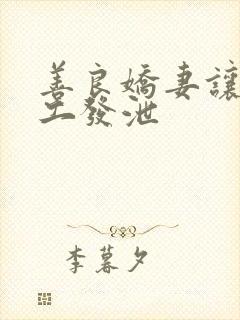 善良嬌妻讓
工發泄
李暮夕